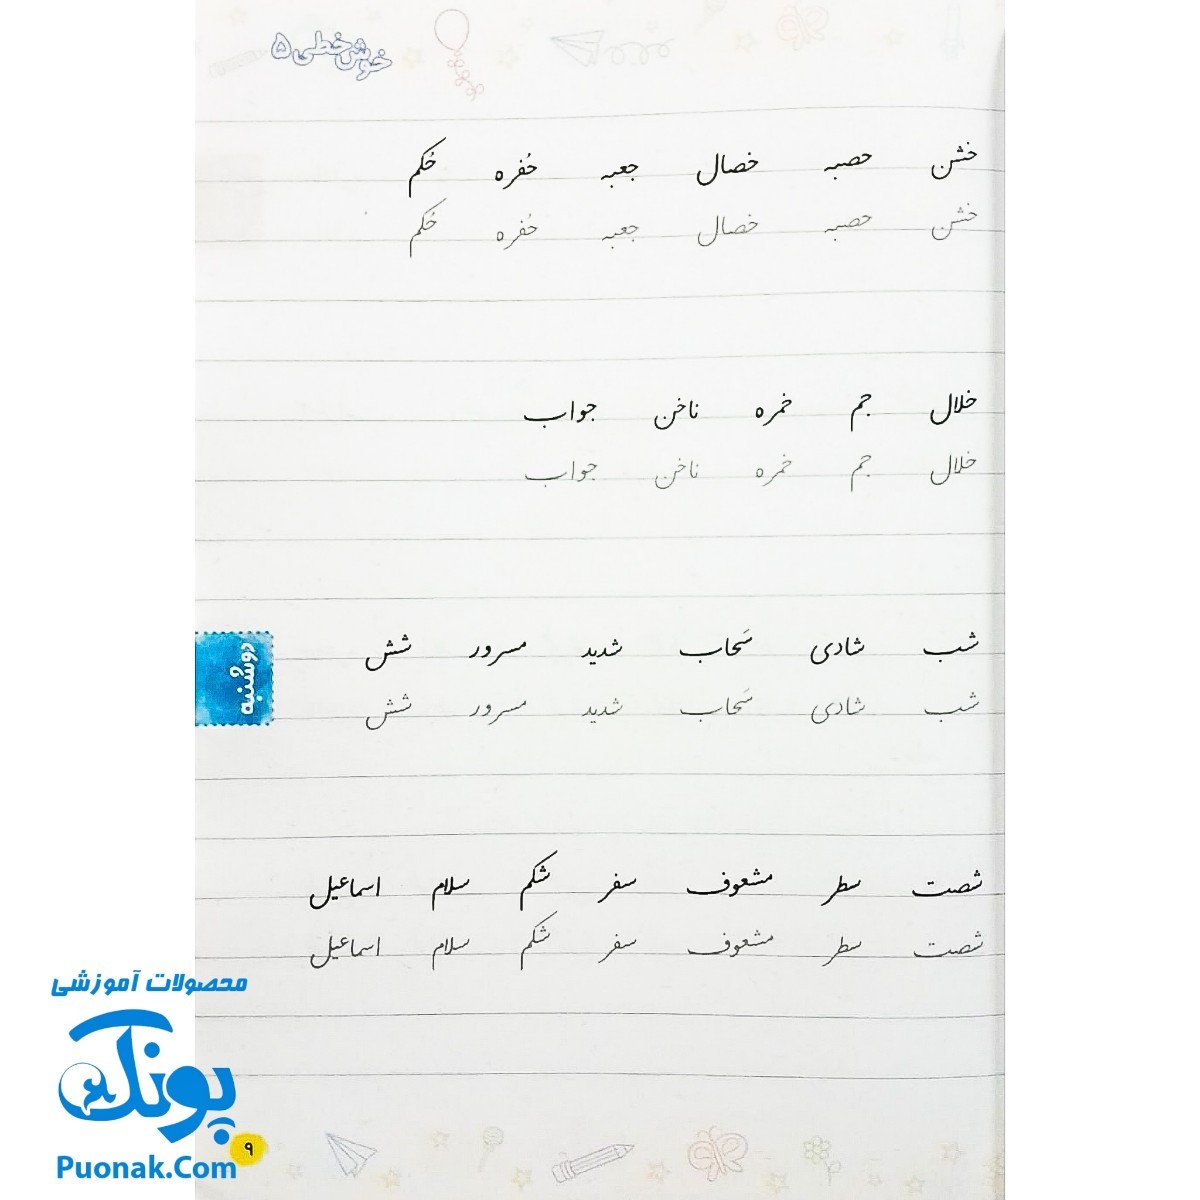 خوش خطی ۵
خشن حصبه خصال جعبه حُفره حُکم
خشن حصبه خصال جعبه حُفره حُکم
خلال جم خمره ناخن جواب
خلال جم خمره ناخن جواب
شب شادی سَحاب شدید مسرور شش
شب شادی سَحاب شدید مسرور شش
دوشنبه
شصت سطر مشعوف سفر شکم سلام اسماعیل
شصت سطر مشعوف سفر شکم سلام اسماعیل
محصولات آموزشی
پونک
Puonak.Com
۹